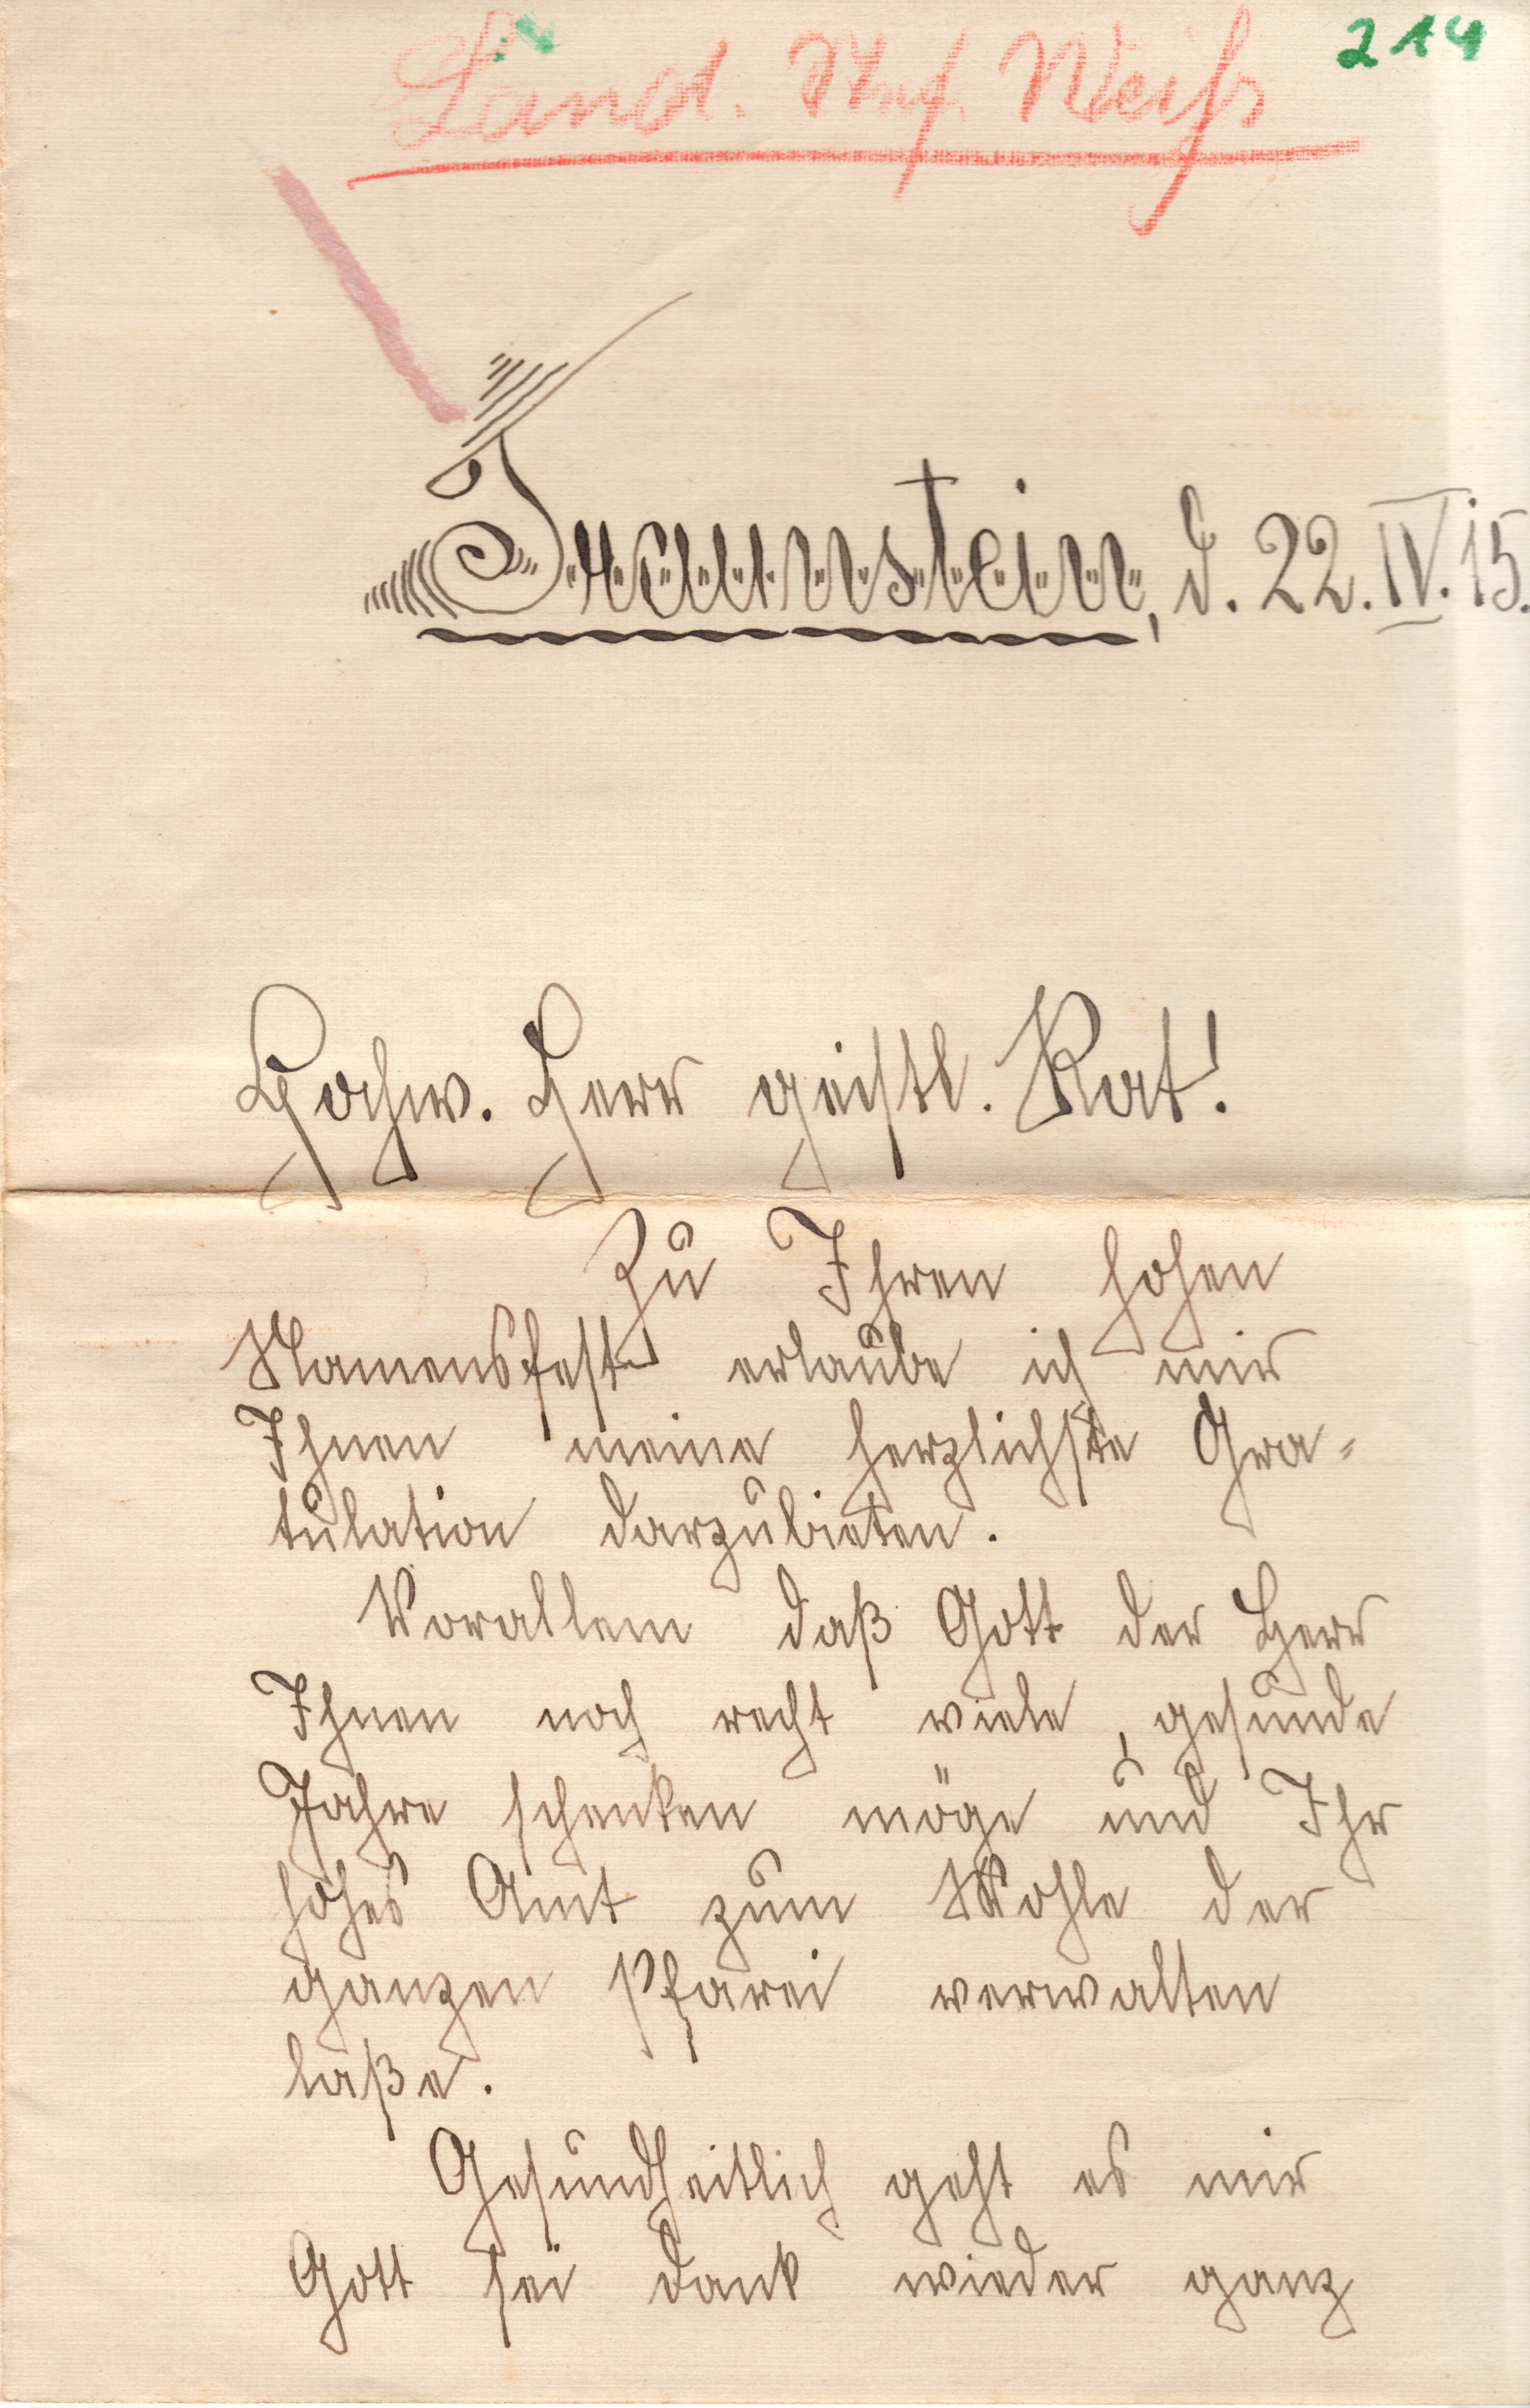 214
Land. Inf. Weiß
Traunstein, d. 22. IV. 15.
Hochw. Herr geistl. Rat!
Zu Ihren hohen
Namensfeste erlaube ich mir
Ihnen meine herzlichste Gra-
tulation darzubieten.
Vorallem daß Gott der Herr
Ihnen noch recht viele, gesunde
Jahre schenken möge und Ihr
hohes Amt zum Wohle der
ganzen Pfarei verwalten
laße.
Gesundheitlich geht es mir
Gott sei dank wieder ganz